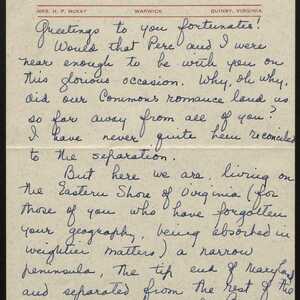 MRS. H. P. McKAY WARWICK QUINBY, VIRGINIA
Greetings to you fortunates!
Would that Pere and I were
near enough to be with you on
this glorious occasion. Why, oh why,
did our Commons romance land us
so far away from all of you?
I have never quite been reconciled
to the separation.
But here we are, living on
the Eastern Shore of Virginia (for
those of you who have forgotten
your geography, being absorbed in
weightier matters) a narrow
peninsula, the tip end of Maryland
and separated from the rest of the